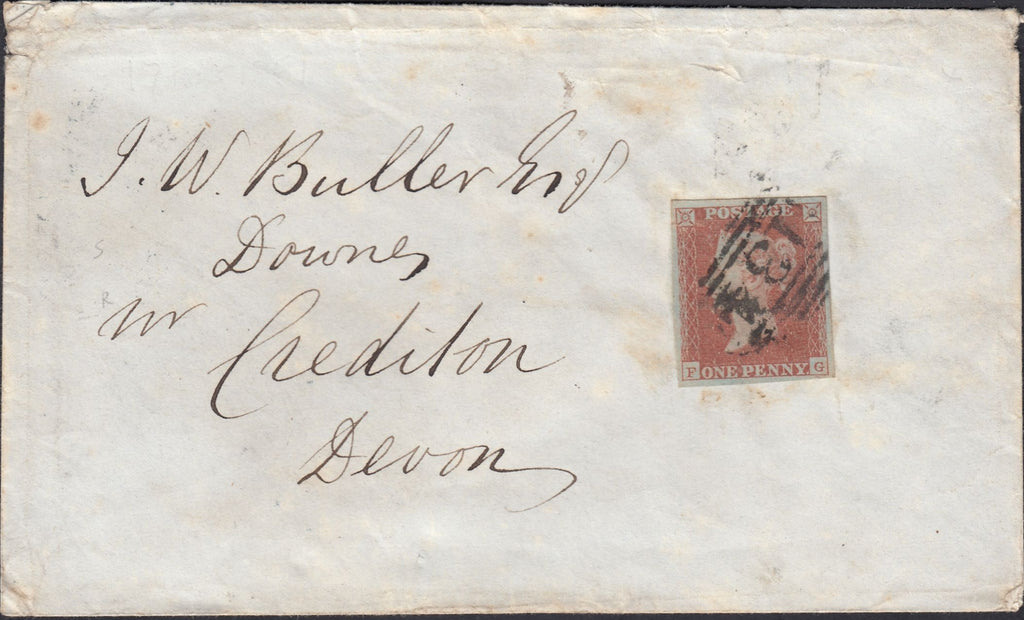 J. W. Buller Esq
Downes
nr Crediton
Devon
POSTAGE
ONE PENNY
F
G
S
R